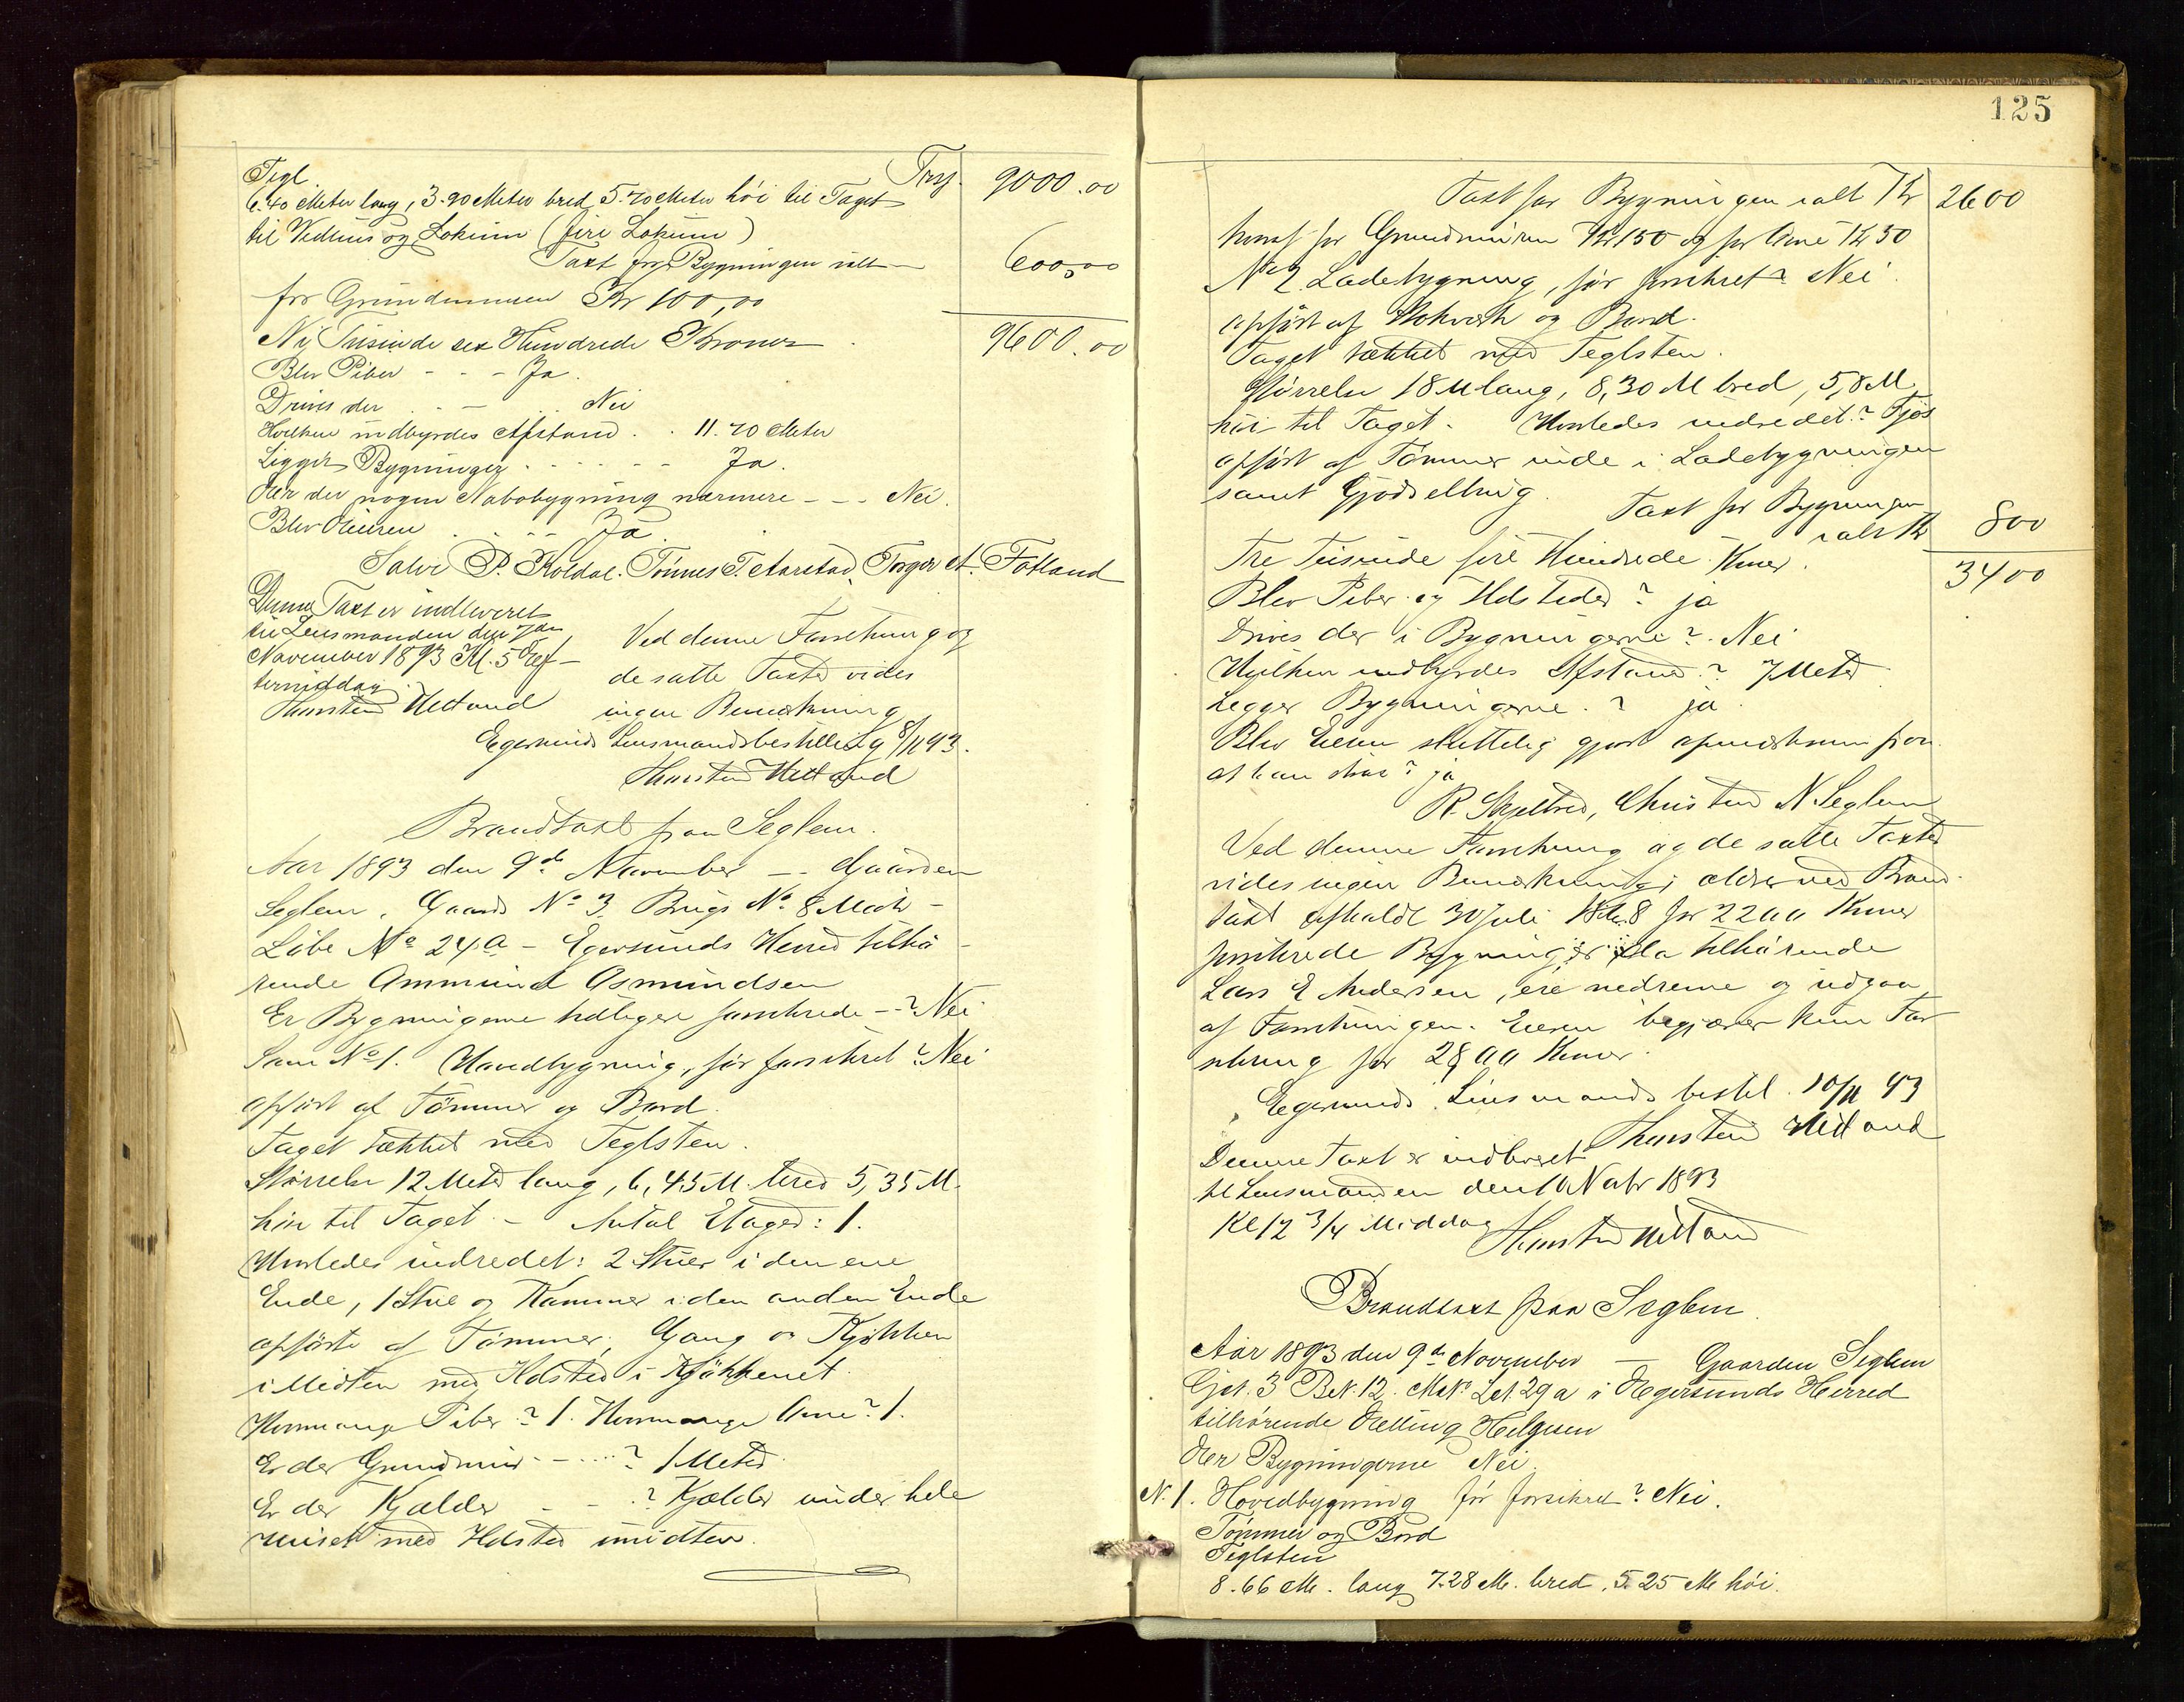 Tegl Trsp. 9000.00
6.40 Meter lang, 3.90 Meter bred, 5.70 Meter höi til Taget
til Vedhus og Lokum (fire Lokum)
Taxt for Bygningen ialt 600,00
for Grundmuren Kr 100,00
Ni Tusinde sex Hundrede Kroner 9600.00
Blev Piber - - - Ja.
Drives der . - .. Nei
Hvilken indbyrdes Afstand . . 11.70 Meter
Ligger Bygninger - - - - - - Ja.
Er der nogen Nabobygning nærmere - - - Nei.
Blev Eieren . . - - Ja.
Salve P. Koldal. Tönnes T. Aarstad, Torger A. Fotland
Denne Taxt er indleveret
til Lensmanden den 7de
November 1893 Kl. 5 Ef-
termiddag.
Thorsten Hetland
Ved denne Forsikring og
de satte Taxter vides
ingen Bemærkning
Egersunds Lensmandsbestilling 8/11 93.
Thorsten Hetland
Brandtaxt paa Seglem.
Aar 1893 den 9de November -- Gaarden
Seglem, Gaards No 3 Brugs No 8 Matr -
Löbe No 24a - Egersunds Herred tilhö-
rende Ammund Osmundsen
Er Bygningerne tidligere forsikrede -- ? Nei
Som No 1. Hovedbygning, för forsikret? Nei
opfört af Tömmer og Bord.
Taget tækket med Teglsten.
Størrelse 12 Meter lang, 6,45 M. bred 5,35 M.
höi til Taget. - Antal Etager: 1.
Hvorledes indredet: 2 Stuer i den ene
Ende, 1 Stue og Kammer i den anden Ende
opförte af Tömmer, Gang og Kjökken
i Midten med Ildsted i Kjökkenet.
Hvormange Piber? 1. Hvormange Ovne? 1.
Er der Grundmur - - ....? 1 Meter.
Er der Kjælder - - .? Kjælder under hele
Huset med Ildsted i midten.
125
Taxt for Bygningen ialt Kr 2600
hvoraf for Grundmuren Kr 150 og for Ovne Kr 50
No 2 Ladebygning, för forsikret? Nei.
opfört af Stokværk og Bord.
Taget tækket med Teglsten.
Størrelse 18 M lang, 8,30 M bred, 5,8 M
höi til Taget. Hvorledes indredet? Fjös
opfört af Tömmer inde i Ladebygningen
samt Gjødselbing. Taxt for Bygningen
ialt Kr 800
Tre Tusinde fire Hundrede Kroner. 3400
Blev Piber og Ildsteder? ja
Drives der i Bygningerne? Nei
Hvilken indbyrdes Afstand? 7 Meter
Ligger Bygningerne? ja.
Blev Eieren sluttelig gjort opmærksom paa
at han skal? ja
R. Skjelbred, Christen N. Seglem
Ved denne Forsikring og de satte Taxter
vides ingen Bemærkning; ældre ved Brand-
taxt afholdt 30 Juli 1868 for 2200 Kroner
forsikrede Bygninger da tilhörende
Lars E Andersen, ere nedrevne og udgaa
af Forsikringen. Eieren begjærer kun For-
sikring for 2800 Kroner.
Egersunds Lensmands bestil. 10/11 93
Thorsten Hetland
Denne Taxt er indleveret
til Lensmanden den 10 Novbr 1893
Kl 12 3/4 Middag
Thorsten Hetland
Brandtaxt paa Seglem.
Aar 1893 den 9de November - Gaarden Seglem
Gd. 3 B.N. 12. Mat. L. 29a i Egersunds Herred
tilhörende Elling Helgesen
Er Bygningerne Nei.
N. 1. Hovedbygning för forsikret? Nei.
Tömmer og Bord
Teglsten
8.66 M. lang 7.28 M. bred, 5.25 M höi.